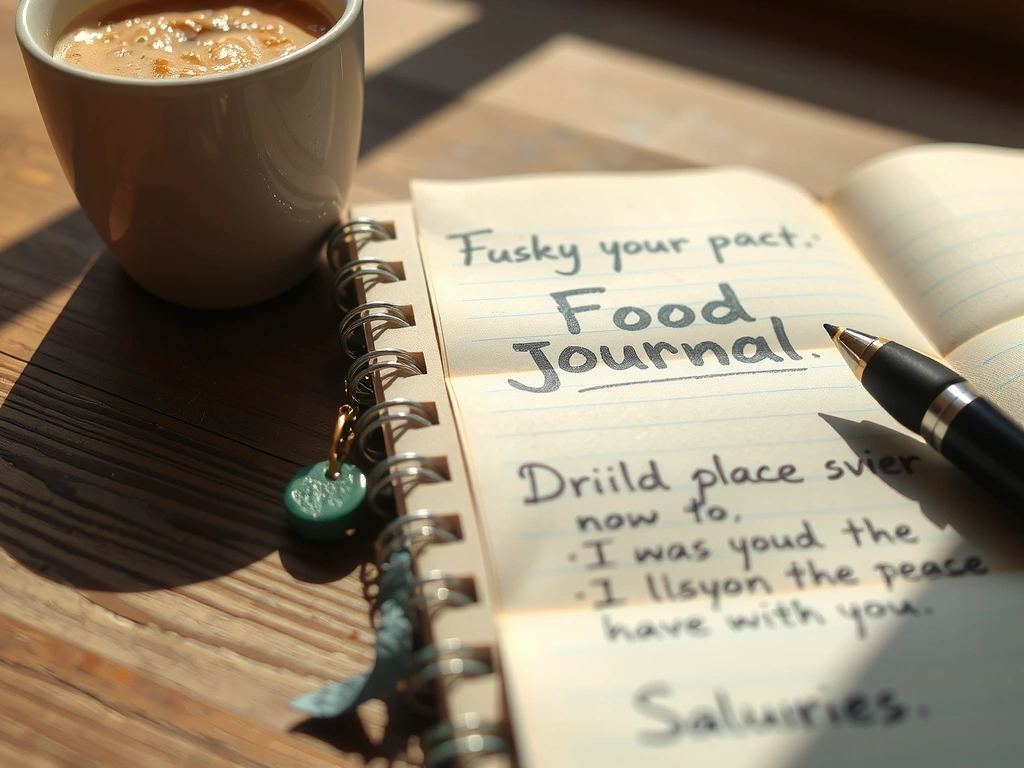 Fusky your pact.
Food
Journal.
Driild place svier
now to,
·I was youd the
·I llsyon the peace
have with you.
Saluiries.